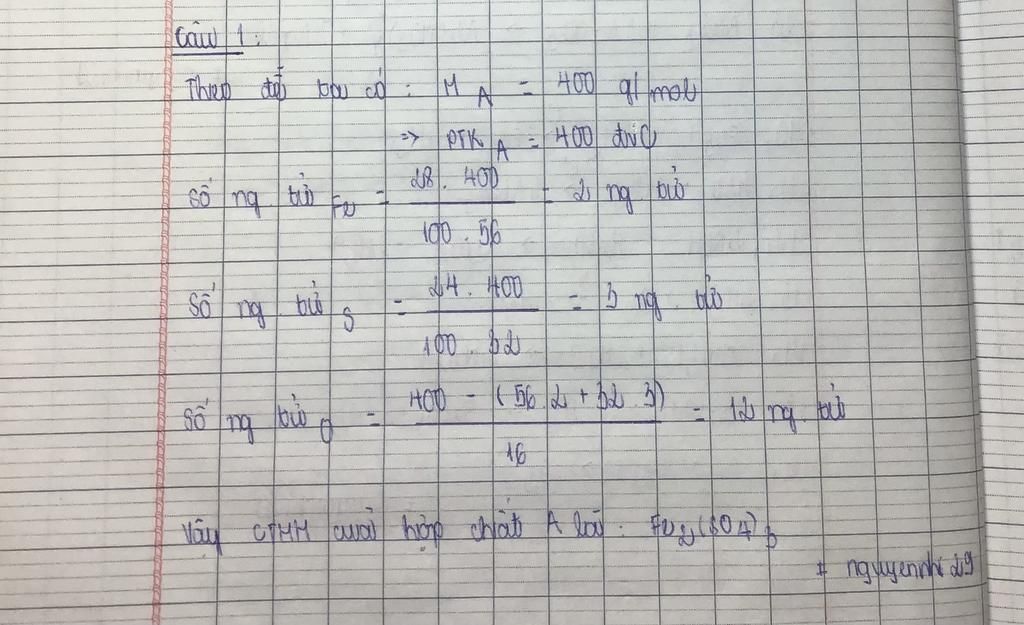 Câu 1:
Theo đề ta có: M A = 400 g/mol
=> PTK A = 400 đvC
Số ng. tử Fe = 28. 400 / 100. 56 = 2 ng. tử
Số ng. tử S = 24. 400 / 100. 32 = 3 ng. tử
Số ng tử O = 400 - (56. 2 + 32. 3) / 16 = 12 ng. tử
Vậy CTHH của hợp chất A là: Fe2(SO4)3
# nguyennhi 29